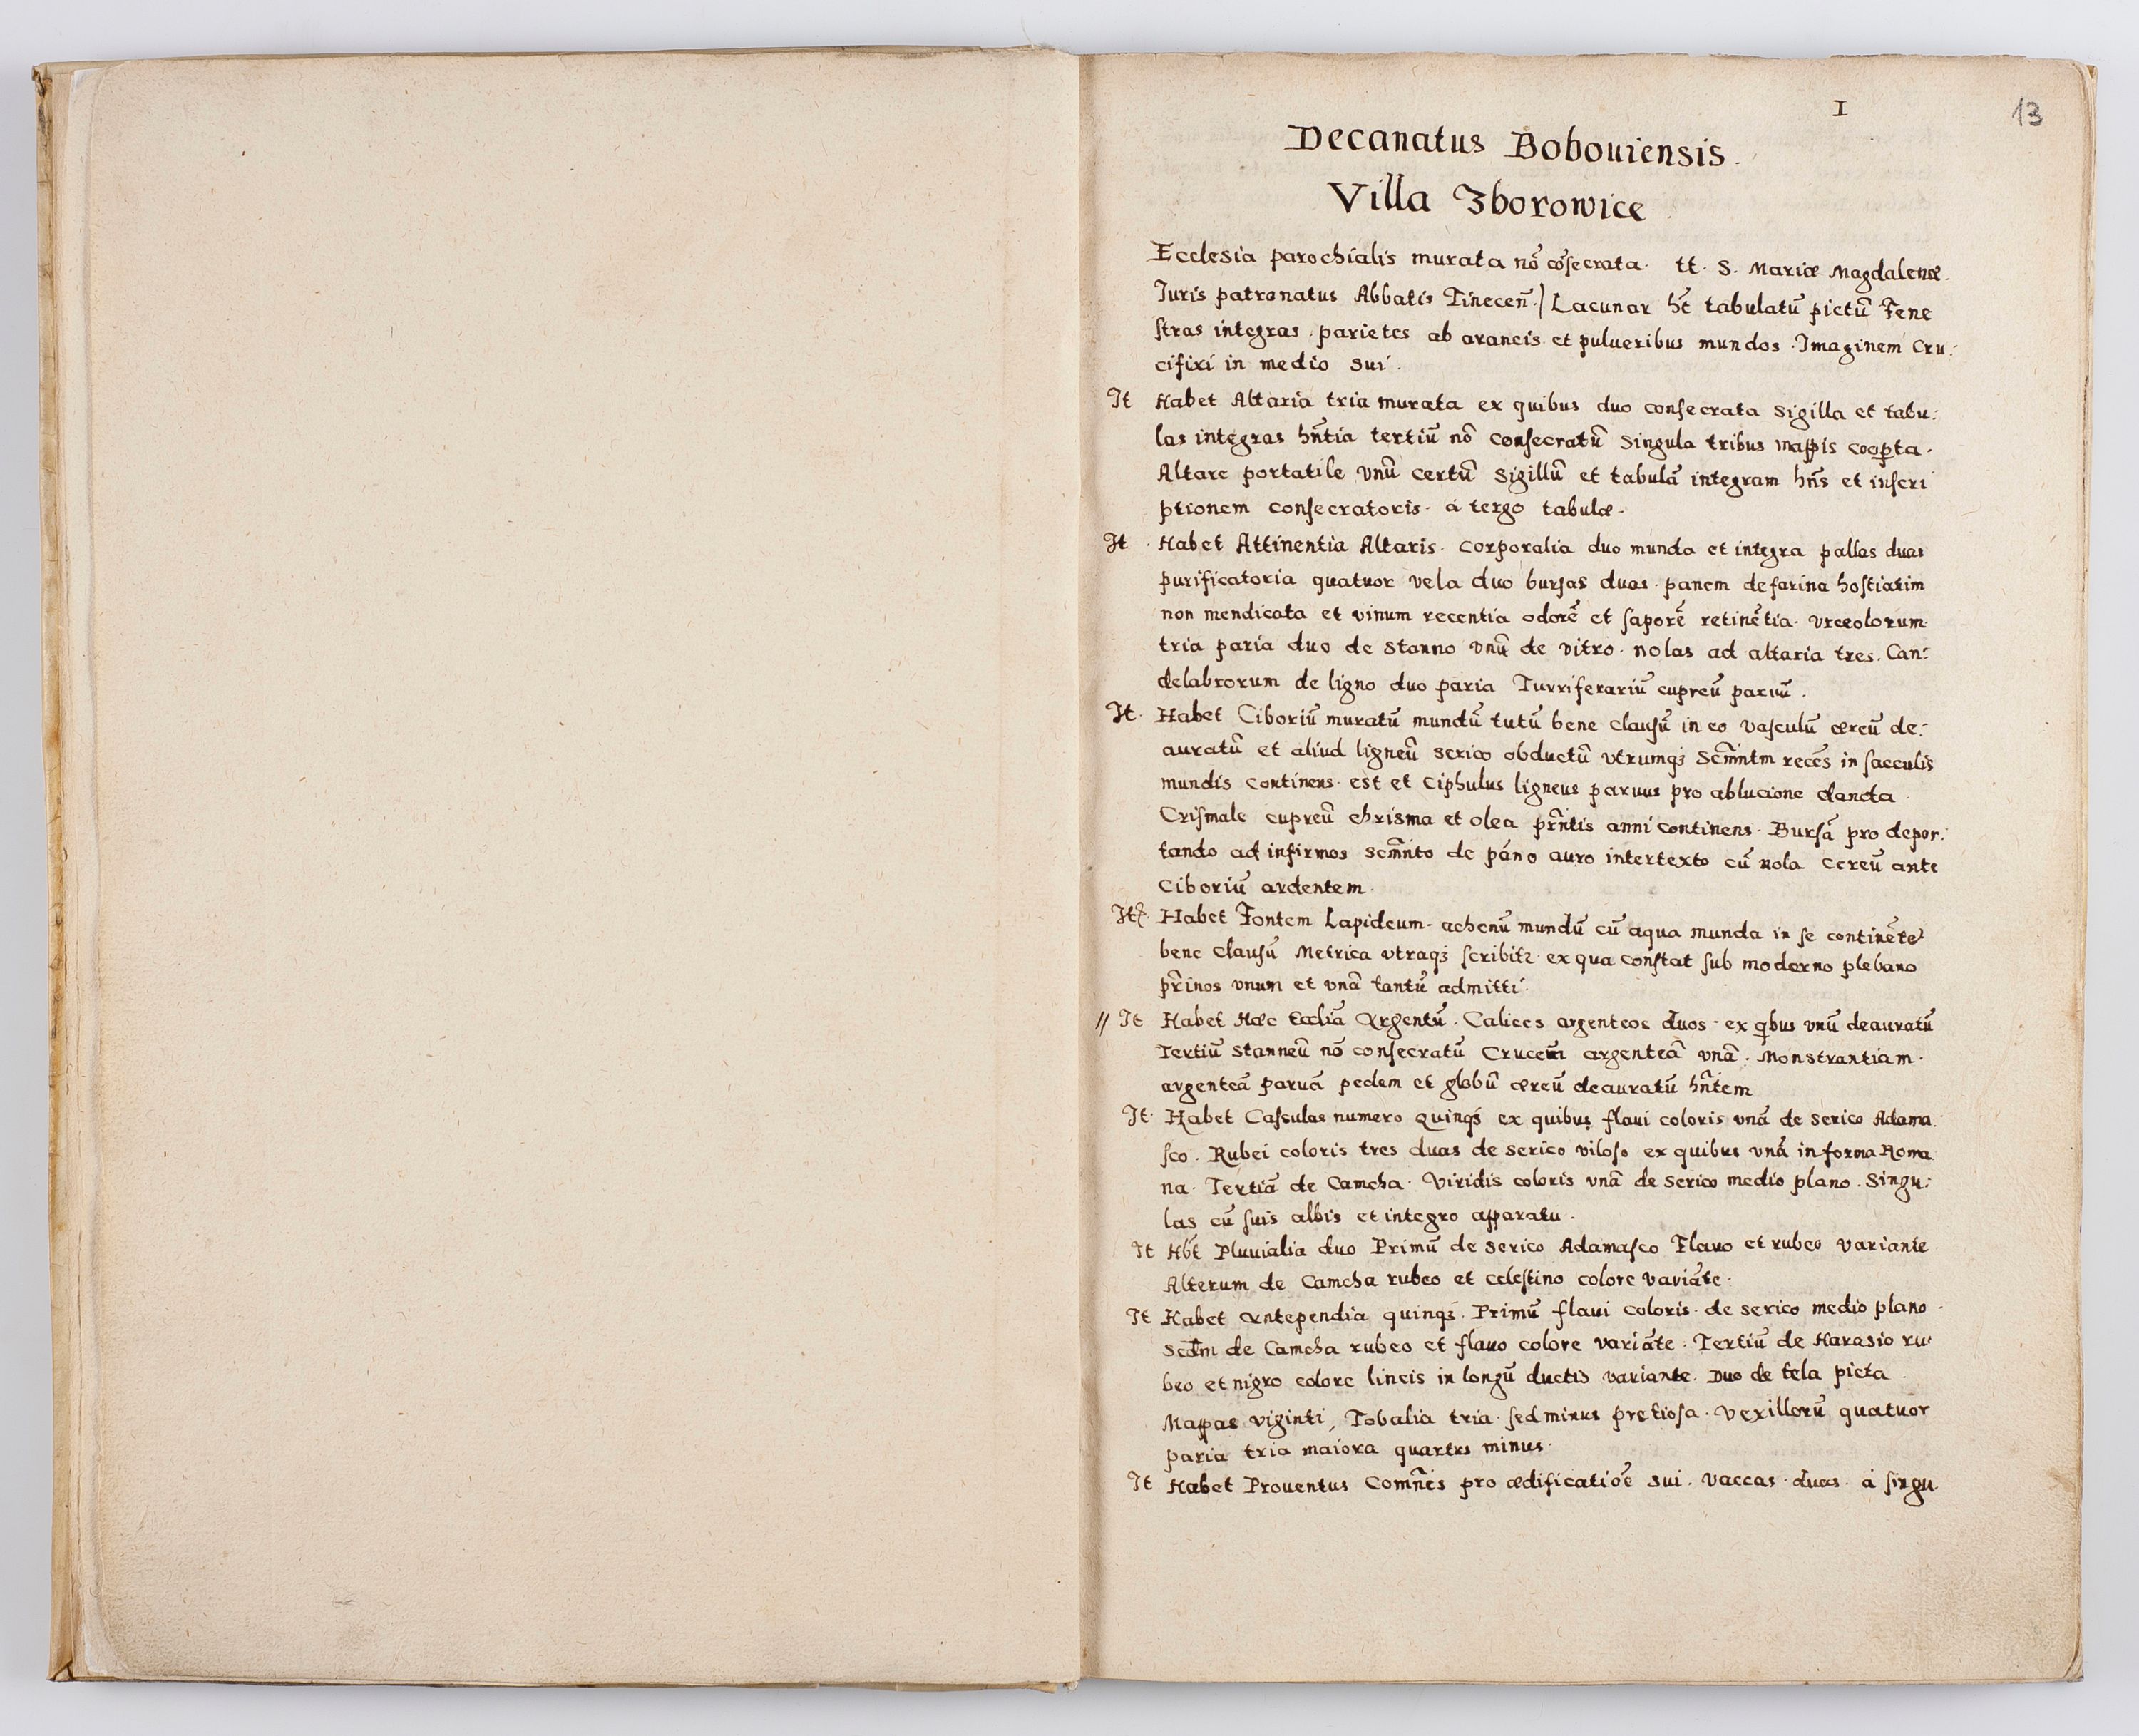 I
13
Decanatus Bobouiensis.
Villa Zborowice
Ecclesia parochialis murata nō cōsecrata. tt. S. Mariæ Magdalenæ.
Juris patronatus Abbatis Tinecen̄.) Lacunar h̄t tabulatū pictū Fene
stras integras. parietes ab araneis et pulueribus mundos. Imaginem Cru:
cifixi in medio sui.
It Habet Altaria tria murata ex quibus duo consecrata Sigilla et tabu:
las integras hn̄tia tertiū nō consecratū Singula tribus mappis coopta.
Altare portatile vnū certū Sigillū et tabulā integram hn̄s et inscri
ptionem consecratoris. à tergo tabulæ.
It. Habet Attinentia Altaris. corporalia duo munda et integra pallas duas
purificatoria quatuor vela duo bursas duas. panem de farina hostiatim
non mendicata et vinum recentia odorē et saporē retinētia. vrceolorum
tria paria duo de stanno vnū de vitro. nolas ad altaria tres. Can:
delabrorum de ligno duo paria Turriferariū cupreū paruū.
It. Habet Ciboriū muratū mundū tutū bene clausū in eo vasculū æreū de:
auratū et aliud ligneū serico obductū vtrumq; Scm̄ntm recēs in sacculis
mundis continens. est et ciphulus ligneus paruus pro ablucione dancta.
Crismale cupreū chrisma et olea prn̄tis anni continens. Bursā pro depor:
tando ad infirmos scm̄nto de pāno auro intertexto cū nola cereū ante
Ciboriū ardentem.
It. Habet Fontem Lapideum. achenū mundū cū aqua munda in se continēte
bene clausū Metrica vtraq; scribitr ex qua constat sub moderno plebano
pr̄inos vnum et vnā tantū admitti.
// It Habet Hæc Ecclīa Argentū. Calices argenteos duos. ex qbus vnū deauratū
Tertiū stanneū nō consecratū Crucem argenteā vnā. Monstrantiam.
argenteā paruā pedem et globū æreū deauratū hn̄tem
It. Habet Casulas numero quinq; ex quibus flaui coloris vnā de serico Adama
sco. Rubei coloris tres duas de serico viloso ex quibus vnā in forma Roma
na. Tertiā de Camcha. Viridis coloris vnā de serico medio plano. Singu:
las cū suis albis et integro apparatu.
It Hb̄t Pluuialia duo Primū de serico Adamasco Flauo et rubeo variante
Alterum de Camcha rubeo et celestino colore variāte.
It Habet Antependia quinq;. Primū flaui coloris. de serico medio plano.
Scd̄m de Camcha rubeo et flauo colore variāte. Tertiū de Harasio ru
beo et nigro colore lineis in longū ductis variante. Duo de tela picta.
Mappas viginti, Tobalia tria. sed minus pretiosa. Vexillorū quatuor
paria tria maiora quartus minus.
It Habet Prouentus Comn̄es pro ædificatiōe sui. Vaccas. duas. à singu.